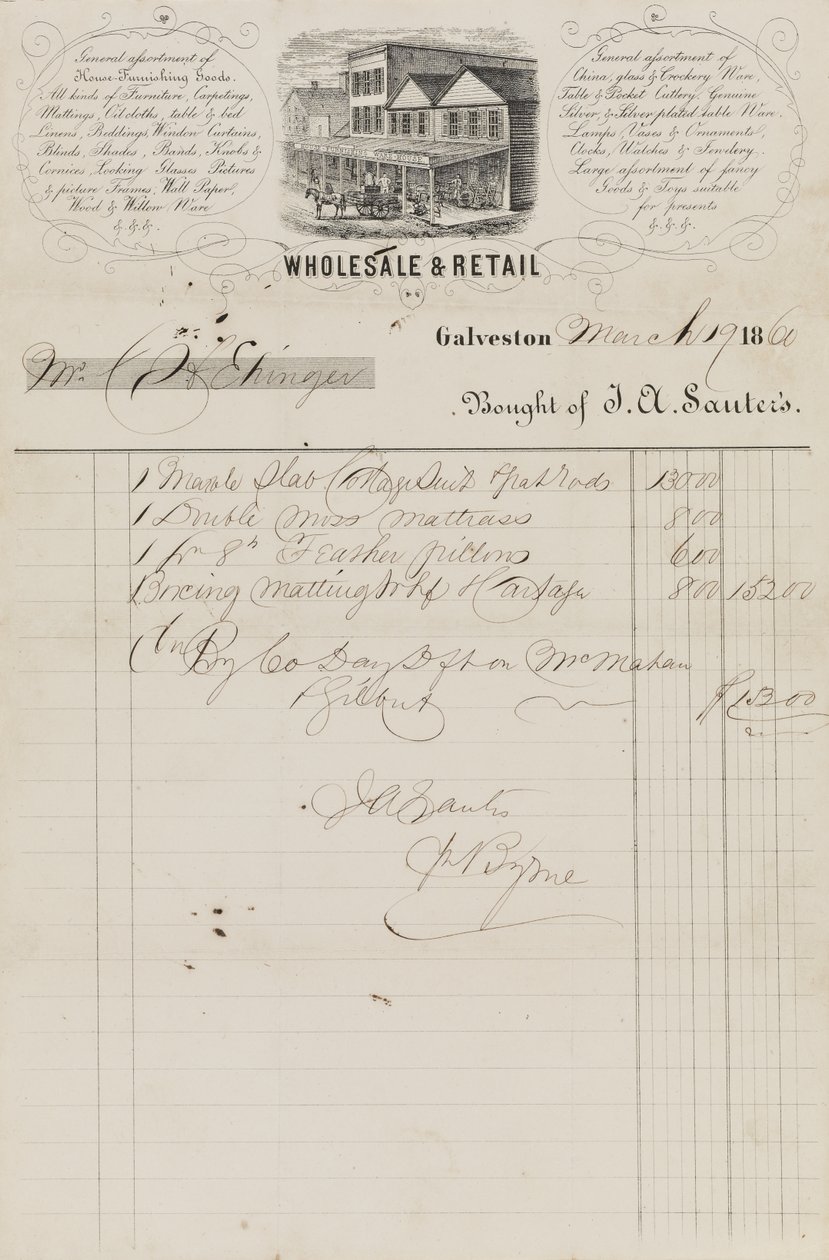 General assortment of
House-Furnishing Goods.
All kinds of Furniture, Carpetings,
Mattings, Oil cloths, table & bed
Linens, Beddings, Window Curtains,
Blinds, Shades, Bands, Knobs &
Cornices, Looking Glasses Pictures
& picture Frames, Wall Paper,
Wood & Willow Ware
&. &. &.
General assortment of
China, glass & Crockery Ware,
Table & Pocket Cutlery, Genuine
Silver, & Silver plated table Ware.
Lamps, Vases & Ornaments,
Clocks, Watches & Jewelery.
Large assortment of fancy
Goods & Toys suitable
for presents
&. &. &.
WHOLESALE & RETAIL
Galveston March 19 1860
Mr. Ehinger
Bought of J. A. Sauter's.
1 Marble Slab Cottage Suit & flat rods 130 00
1 Double Moss Mattrass 8 00
1 pr 8 Feather pillows 6 00
Boxing Matting Whf & Cartage 8 00 152 00
Cr By 60 Days Dft on McMahan
& Gilbert $152 00
J A Sauter
pr N Byrne